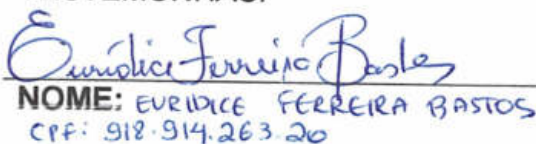 Eurídice Ferreira Bastos
NOME: EURIDICE FERREIRA BASTOS
CPF: 918.914.263.20